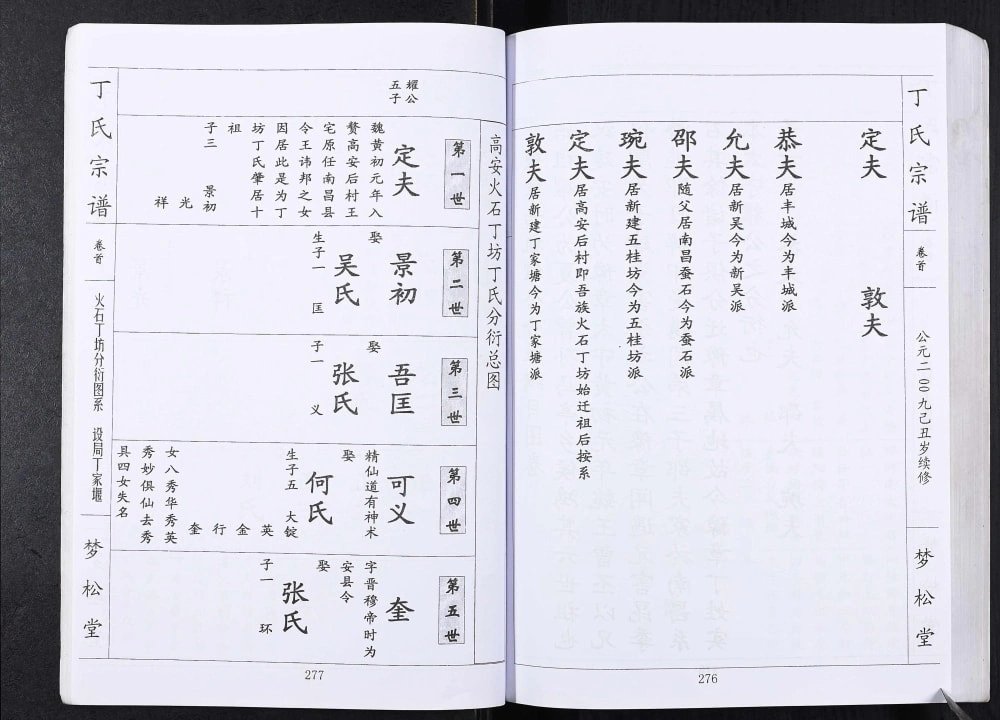 丁氏宗谱
卷首
公元二00九己丑岁续修
梦松堂
定夫
敦夫
恭夫居丰城今为丰城派
允夫居新吴今为新吴派
邵夫随父居南昌蚕石今为蚕石派
琬夫居新建五桂坊今为五桂坊派
定夫居高安后村即吾族火石丁坊始迁祖后按系
敦夫居新建丁家塘今为丁家塘派
276
高安火石丁坊丁氏分衍总图
耀公
五子
第一世
定夫
魏黄初元年入
赘高安后村王
宅原任南昌县
令王讳邦之女
因居此是为丁
坊丁氏肇居十
祖
子三
景初
光
祥
第二世
景初
娶
吴氏
生子一
匡
第三世
吾匡
娶
张氏
子一
义
第四世
可义
精仙道有神术
娶
何氏
生子五
大锭
英
金
行
奎
女八秀华秀英
秀妙俱仙去秀
具四女失名
第五世
奎
字晋穆帝时为
安县令
娶
张氏
子一
环
丁氏宗谱
卷首
火石丁坊分衍图系
设局丁家堰
梦松堂
277